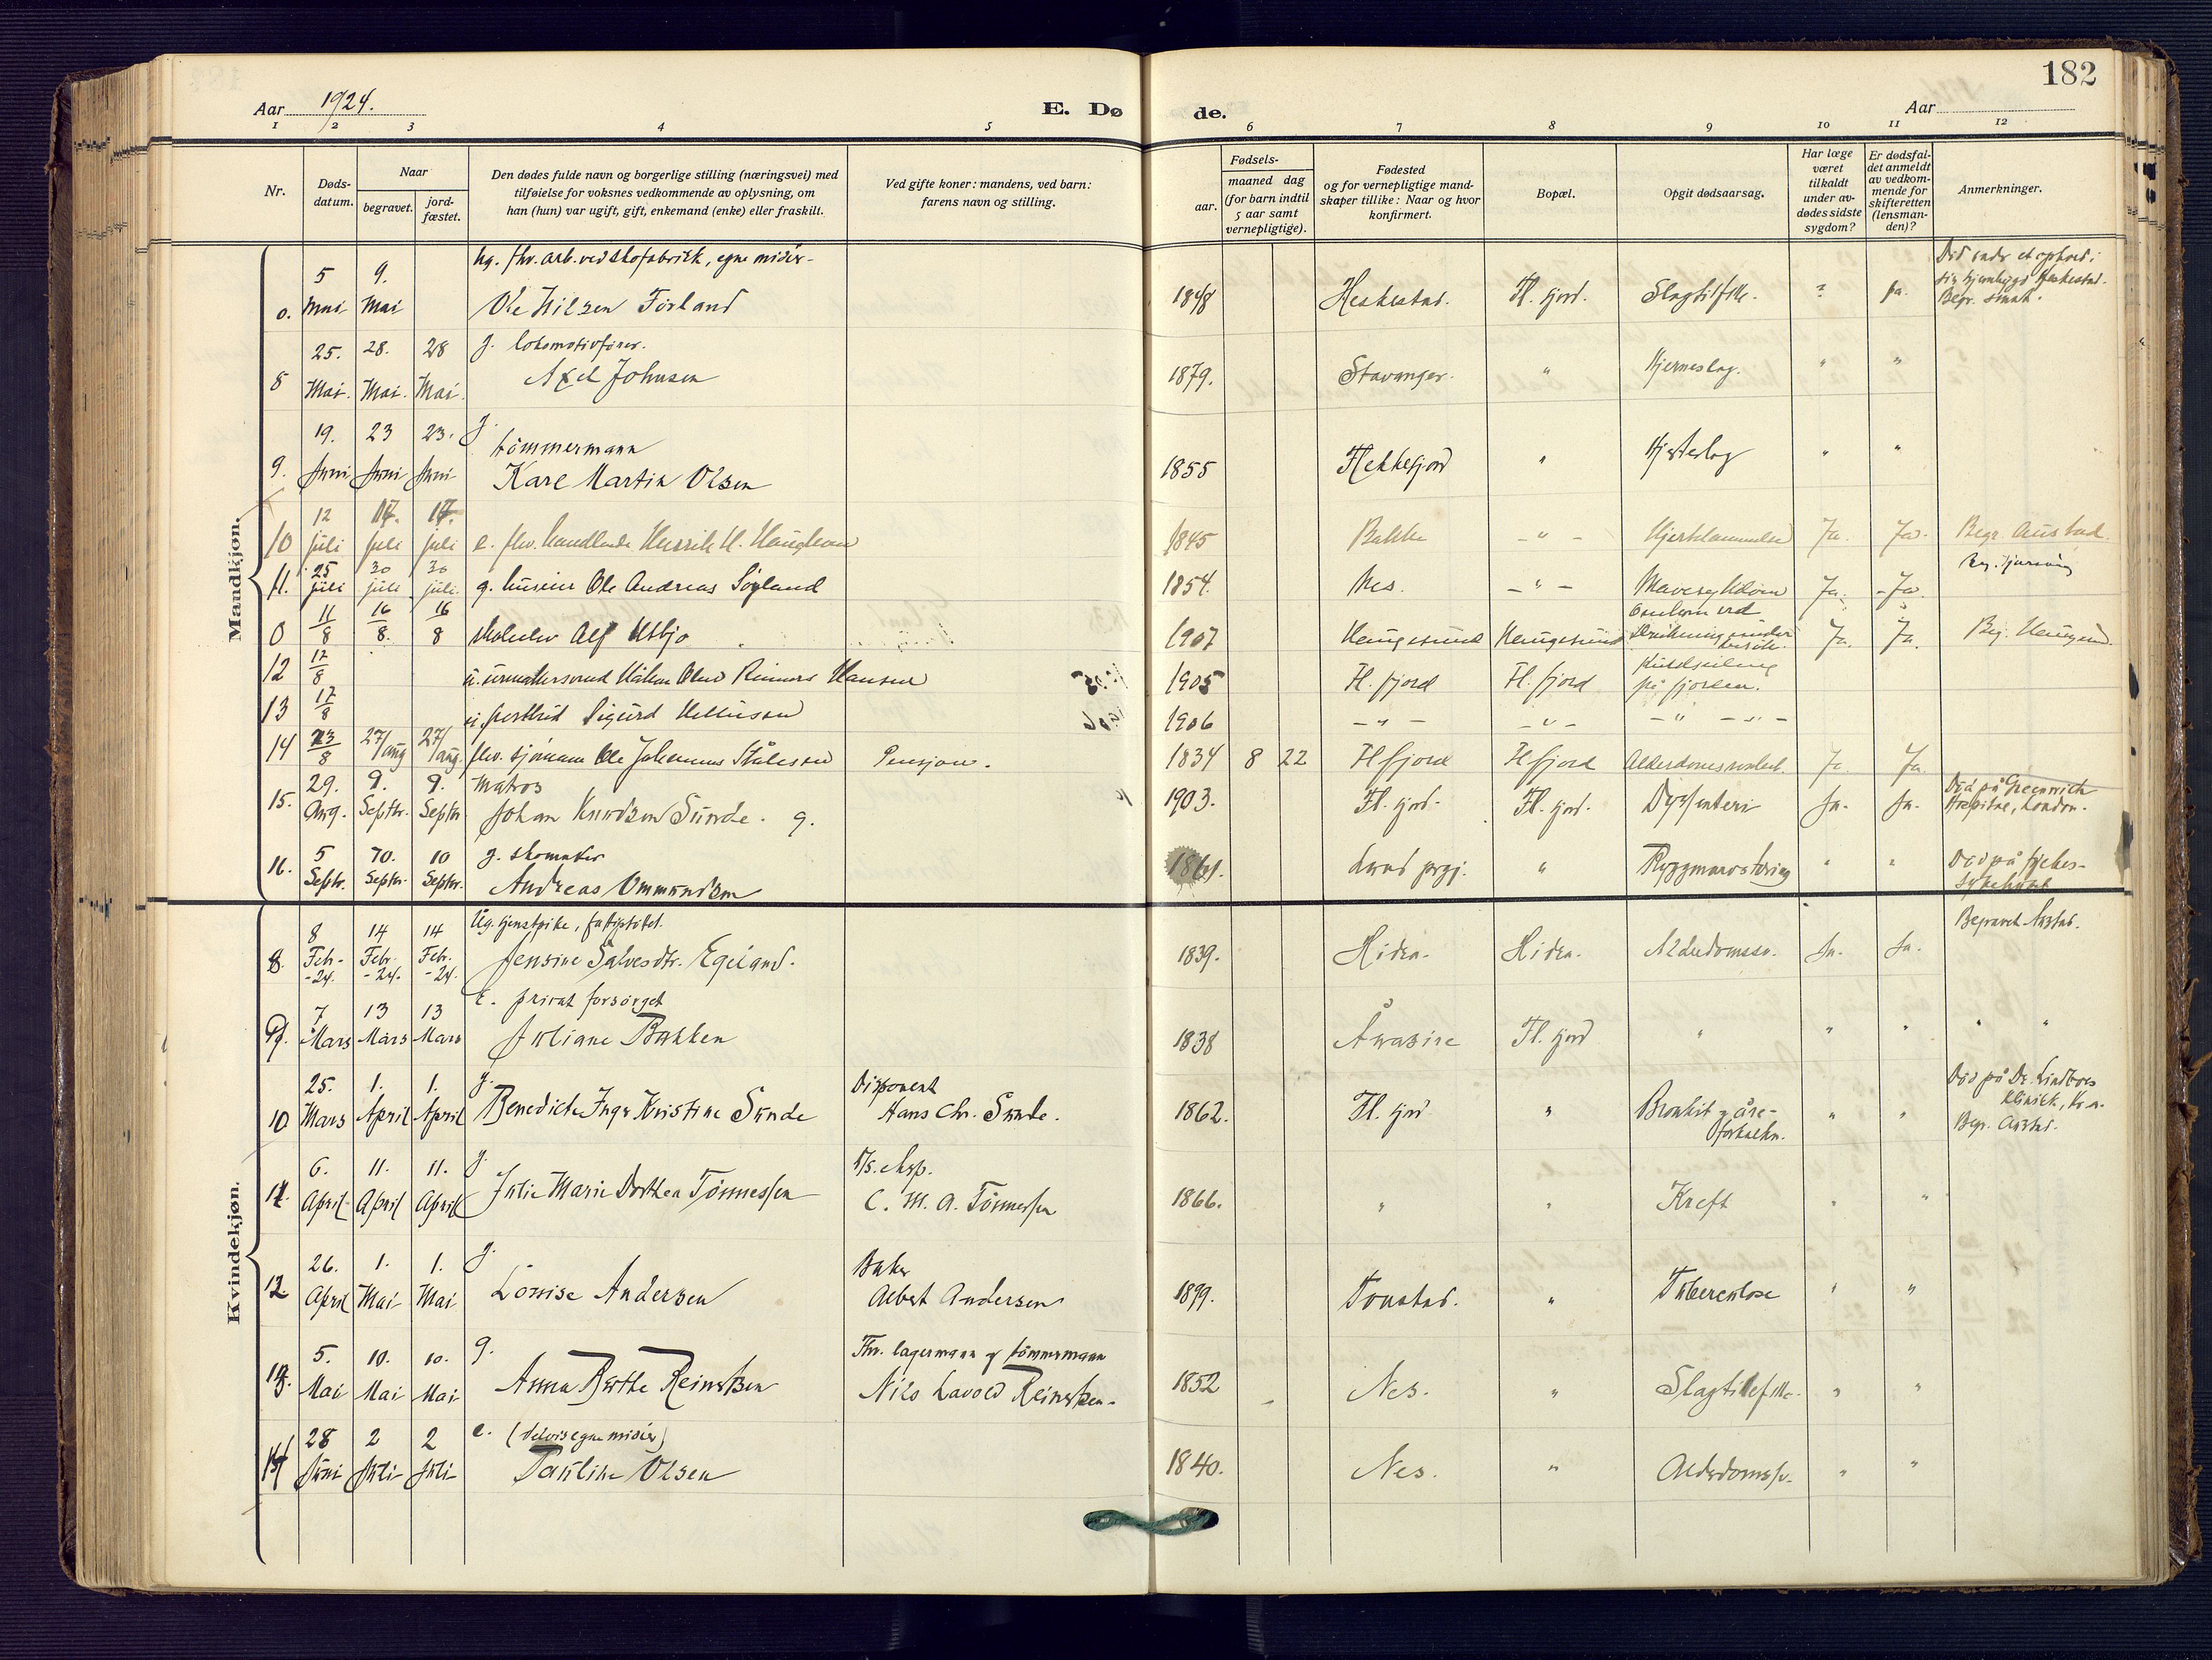 182
Aar 1924. E. Døde. Aar
1 2 3 4 5 6 7 8 9 10 11 12
Nr.
Døds-
datum.
Naar
begravet.
jord-
fæstet.
Den dødes fulde navn og borgerlige stilling (næringsvei) med
tilføielse for voksnes vedkommende av oplysning, om
han (hun) var ugift, gift, enkemand (enke) eller fraskilt.
Ved gifte koner: mandens, ved barn:
farens navn og stilling.
Fødsels-
aar.
maaned dag
(for barn indtil
5 aar samt
vernepligtige).
Fødested
og for vernepligtige mand-
skaper tillike: Naar og hvor
konfirmert.
Bopæl.
Opgit dødsaarsag.
Har læge
været
tilkaldt
under av-
dødes sidste
sygdom?
Er dødsfal-
det anmeldt
av vedkom-
mende for
skifteretten
(lensman-
den)?
Anmerkninger.
Mandkjøn.
fhv. arb. ved skofabrikk, egne midler
0. 5 Mai 9. Mai Ole Nilsen Förland 1848 Heskestad. Fl. fjord. Slagtilfælle. ? Ja.
Begr. smst.
g. lokomotivfører.
8 25. Mai 28. Mai 28 Mai Axel Johnsen 1879. Stavanger. " Hjerneslag. " "
g. tömmermann
9. 19. Juni 23 Juni 23. Juni Karl Martin Olsen 1855 Flekkefjord " Hjerteslag " "
10 12 juli 17. juli 17. juli e. fhv. handlende Henrik H. Haughom 1845 Bakke - " - Hjertelammelse Ja. Ja. Begr. Austad.
11. 25 juli 30 juli 30 juli. g. Ole Andreas Söyland 1854. Nes. - " - Ja. - Ja.
0 11/8 16/8 16/8 Alf Utbjo 1907 Haugesund Haugesund Ja. Ja. Beg. Haugesund.
12 17/8 u. Håkon Olav Hansen 1905 Fl. fjord Fl. fjord Kuldseiling
på fjorden.
13 17/8 u. Sigurd 1906 - " - - " - - " - - " -
14 23/8 27/aug 27/aug. fhv. sjömann Ole Johannes Ståleson Pensjon. 1834 8 22 Fl fjord Fl fjord Ja Ja.
15. 29. Aug. 9. Septbr. 9. Septbr. Matros
Johan Knudsen Sunde. g. 1903. Fl. fjord. Fl. fjord. Dysenteri Ja. Ja. Död på Greenwich
Hospital, London.
16. 5 Septbr. 10. Septbr. 10 Septbr. g. skomaker
Andreas Ommundsen 1861. Lunds prgj. " Ryggmarvstæring " " Död på
Kvindekjøn.
Ug. tjenstpike,
8. 8 Feb. -24. 14 Febr. -24. 14 Febr. -24. Jensine Salvesdtr. Egeland. 1839. Hidra. Hidra. Alderdomssv. Ja. Ja. Begravet Austad.
E. privat forsörget
9. 7 Mars 13 Mars 13 Mars Juliane Bakken 1838 Ånasira Fl. fjord " " " " "
g.
10 25. Mars 1. April 1. April Benedicte Inga Kristine Sunde Disponent
Hans Chr. Sunde. 1862. Fl. fjord " Bronkit - åre-
forkalkn. " " Död på Dr. Lindboes
klinikk, Kr.a.
Begr. Austad.
g.
11. 6. April 11. April 11. April Julie Marie Dorthea Tönnessen
C. M. A. Tönnessen 1866. " " Kreft " "
g.
12. 26. April 1. Mai 1. Mai Lovise Andersen Baker
Albert Andersen 1899. Tonstad. " Tuberculose " "
g.
13. 5. Mai 10. Mai 10. Mai Anna Berthe Reinertsen Fhv. lagermann og tömmermann
Nils Lavold Reinertsen. 1852 Nes. " Slagtilfælle. " "
e. (delvis egne midler)
14 28 Juni 2 Juli 2 Juli Pauline Olsen 1840. Nes. " Alderdomssv. " "